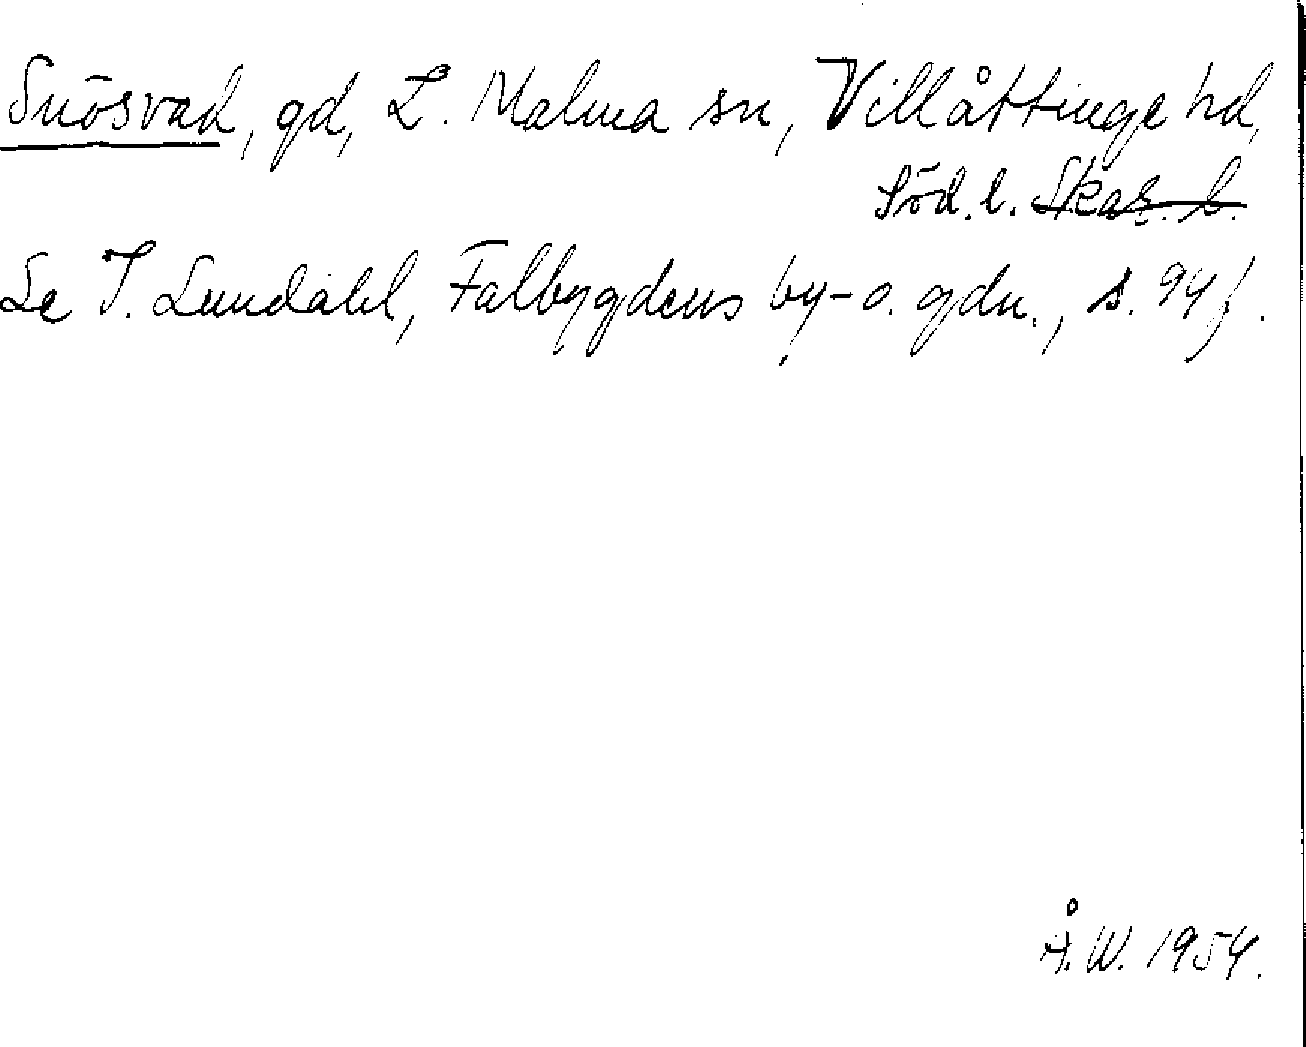 Snösvad, gd, L. Malma sn, Villåttinge hd,
Söd. l. Skar. l.
Se I. Lundahl, Falbygdens by- o. gdn., s. 94 f.
Å. W. 1954.